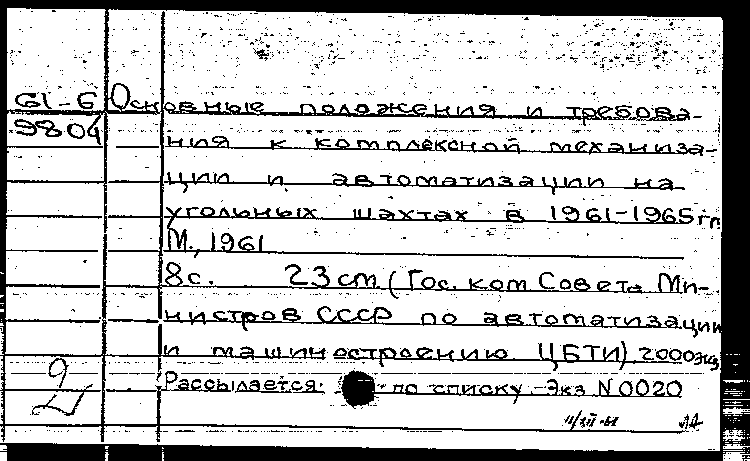 61-6 Основные положения и требова-
9804 ния к комплексной механиза-
ции и автоматизации на
угольных шахтах в 1961-1965 гг.
М., 1961
8с. 23 cm (Гос. ком Совета Ми-
нистров СССР по автоматизации
и машиностроению ЦБТИ) 2000 экз
Рассылается по списку. Экз N 0020